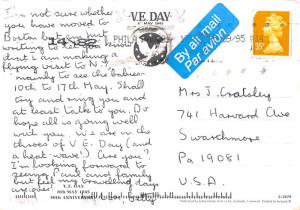 I'm not sure whether
you have moved to
Boston but
writing to know
that i am making a
flying visit to N.J.
mainly to see the babies
10th to 17th May. Shall
try and ring you and
at least talk to you. Do
hope all is going well
with you. We are in the
throes of V.E. Day (and
a heat wave!) Are you?
I'm looking forward to
seeing Paul and family
but my travelling days
are over!
V.E. DAY
8th MAY 1945
50th ANNIVERSARY
V.E. DAY
8th MAY 1945
By air mail
Par avion
35p
Mrs J. Cratsley
741 Harvard Ave
Swarthmore
Pa 19081
U.S.A.